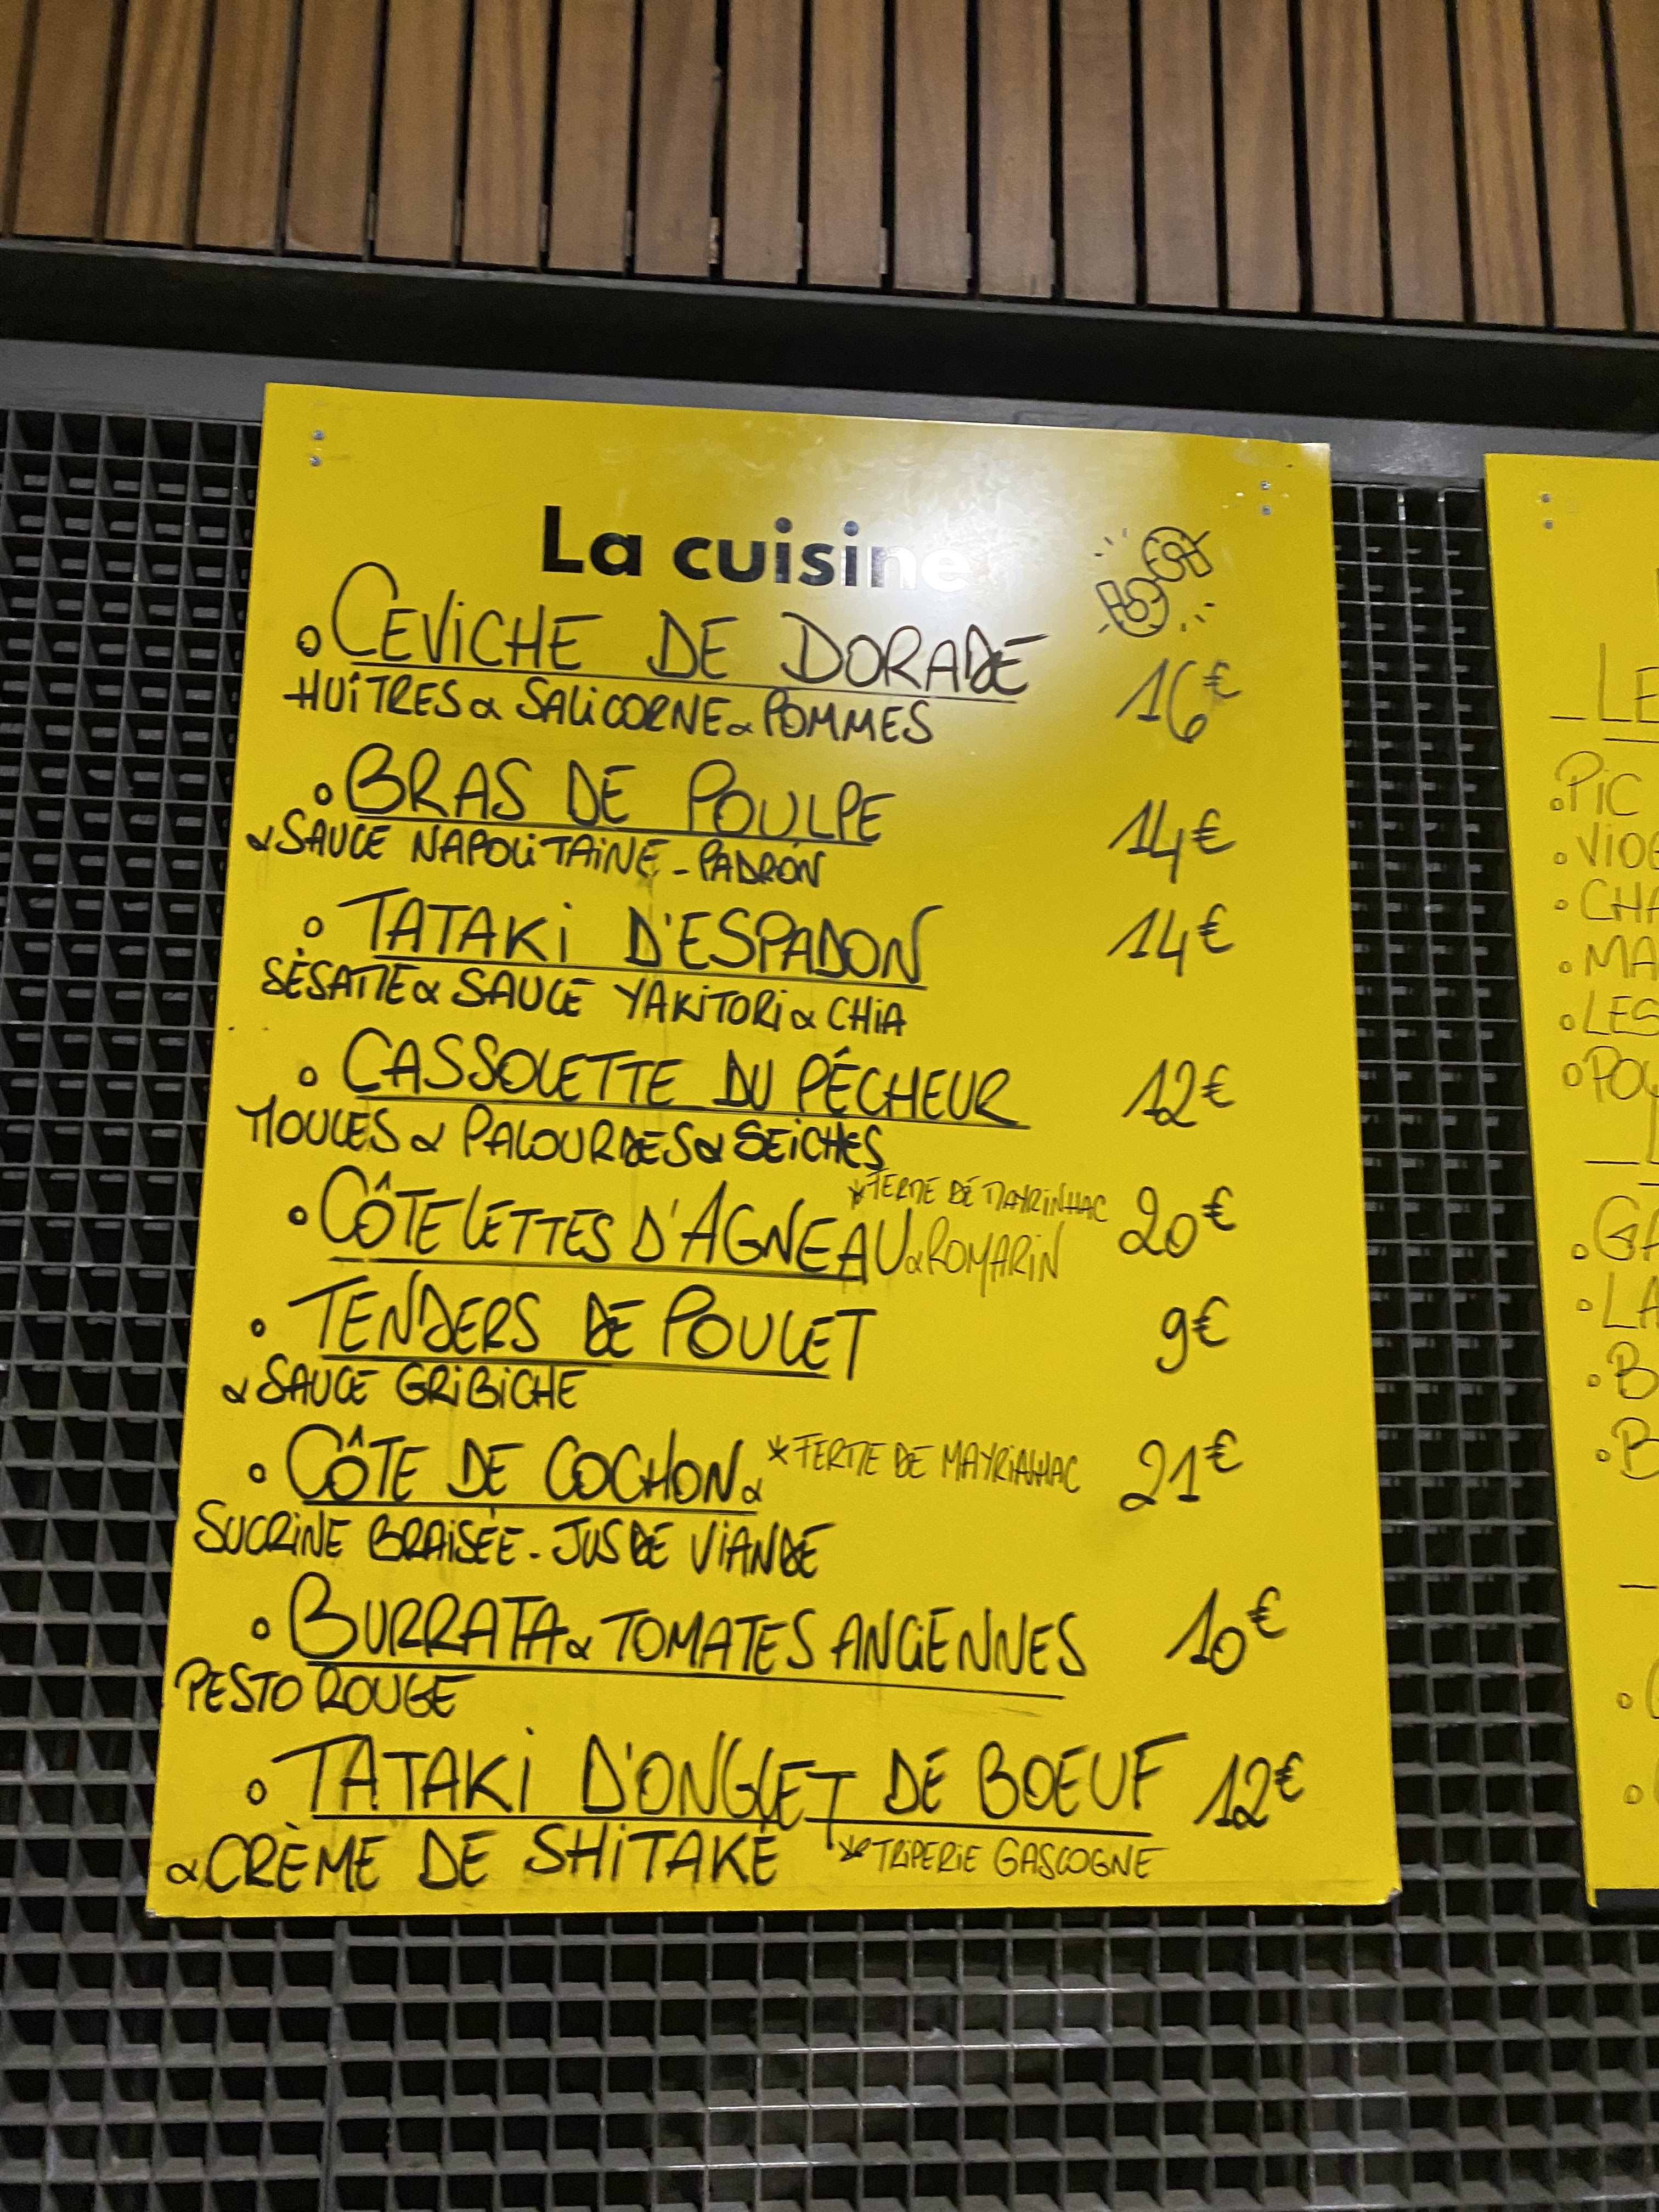 La cuisine
CEVICHE DE DORADE 16€
HUÎTRES & SALICORNE & POMMES
BRAS DE POULPE 14€
& SAUCE NAPOLITAINE - PADRÓN
TATAKI D'ESPADON 14€
SÉSAME & SAUCE YAKITORI & CHIA
CASSOLETTE DU PÉCHEUR 12€
MOULES & PALOURDES & SEICHES
*FERME DE MAYRINHAC
CÔTELETTES D'AGNEAU & ROMARIN 20€
TENDERS DE POULET 9€
& SAUCE GRIBICHE
CÔTE DE COCHON & *FERME DE MAYRINHAC 21€
SUCRINE BRAISÉE - JUS DE VIANDE
BURRATA & TOMATES ANCIENNES 10€
PESTO ROUGE
TATAKI D'ONGLET DE BOEUF 12€
& CRÈME DE SHITAKÉ *TRIPERIE GASCOGNE
LE
PIC
VIOG
CHA
MA
LES
POU
GA
LA
B
B